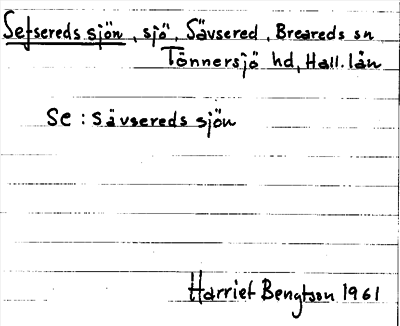 Sefsereds sjön, sjö, Sävsered, Breareds sn
Tönnersjö hd, Hall. län
Se : Sävsereds sjön
Harriet Bengtson 1961